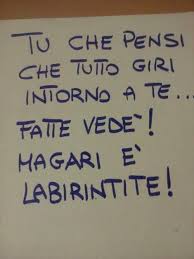 TU CHE PENSI
CHE TUTTO GIRI
INTORNO A TE...
FATTE VEDE'!
MAGARI È
LABIRINTITE!